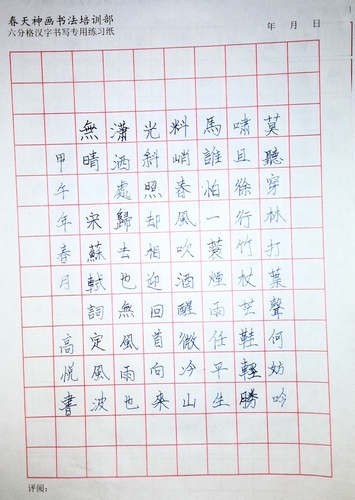 春天神画书法培训部
六分格汉字书写专用练习纸
年 月 日
莫聽穿林打葉聲何妨吟
嘯且徐行竹杖芒鞋輕勝
馬誰怕一蓑煙雨任平生
料峭春風吹酒醒微冷山
光斜照却相迎回首向來
瀟洒處歸去也無風雨也
無晴 宋蘇軾詞定風波
甲午年春月 高悅書
评阅: